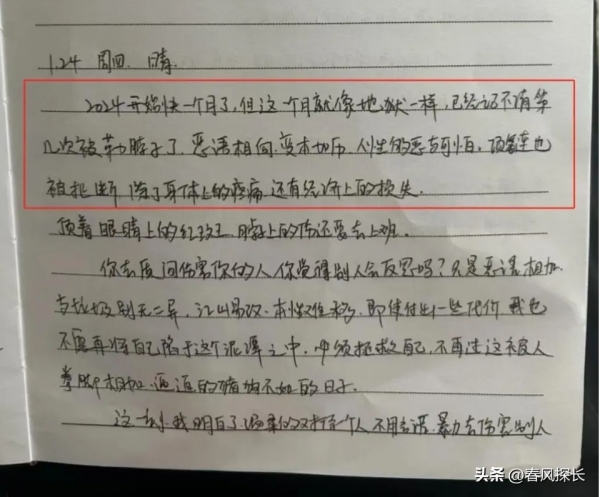 1.24 周四 晴.
2024开始快一个月了,但这一个月就像地狱一样,已经记不清第
几次被勒脖子了.恶语相向.变本加厉.人性的恶真可怕.项链也
被扯断 除了身体上的疼痛,还有经济上的损失.
顶着眼睛上的红 脖子上的伤还要去上班.
你去质问伤害你的人,你觉得别人会反思吗?只是恶语相加
与垃圾别无二异,江山易改.本性难移,即使付出一些代价 我也
不愿再将自己陷于这个泥潭之中.必须拯救自己,不再过这被人
拳脚相加. 的猪狗不如的日子.
这一刻我明白了,温柔的对待一个人 不用言语.暴力去伤害别人
头条 @春风探长